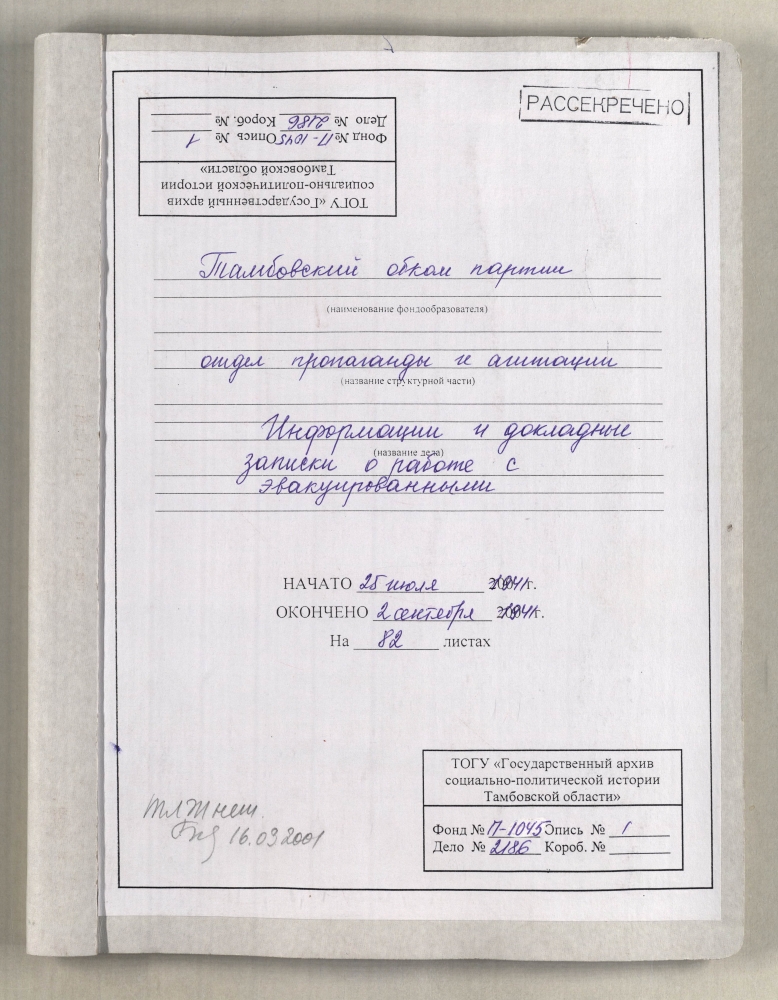 РАССЕКРЕЧЕНО
ТОГУ «Государственный архив
социально-политической истории
Тамбовской области»
Фонд № П-1045 Опись № 1
Дело № 2186 Короб. №
Тамбовский обком партии
(наименование фондообразователя)
отдел пропаганды и агитации
(название структурной части)
Информации и докладные
(название дела)
записки о работе с
эвакуированными
НАЧАТО 25 июля 1941 г.
ОКОНЧЕНО 2 сентября 1941 г.
На 82 листах
ТОГУ «Государственный архив
социально-политической истории
Тамбовской области»
Фонд № П-1045 Опись № 1
Дело № 2186 Короб. №
16.03 2001